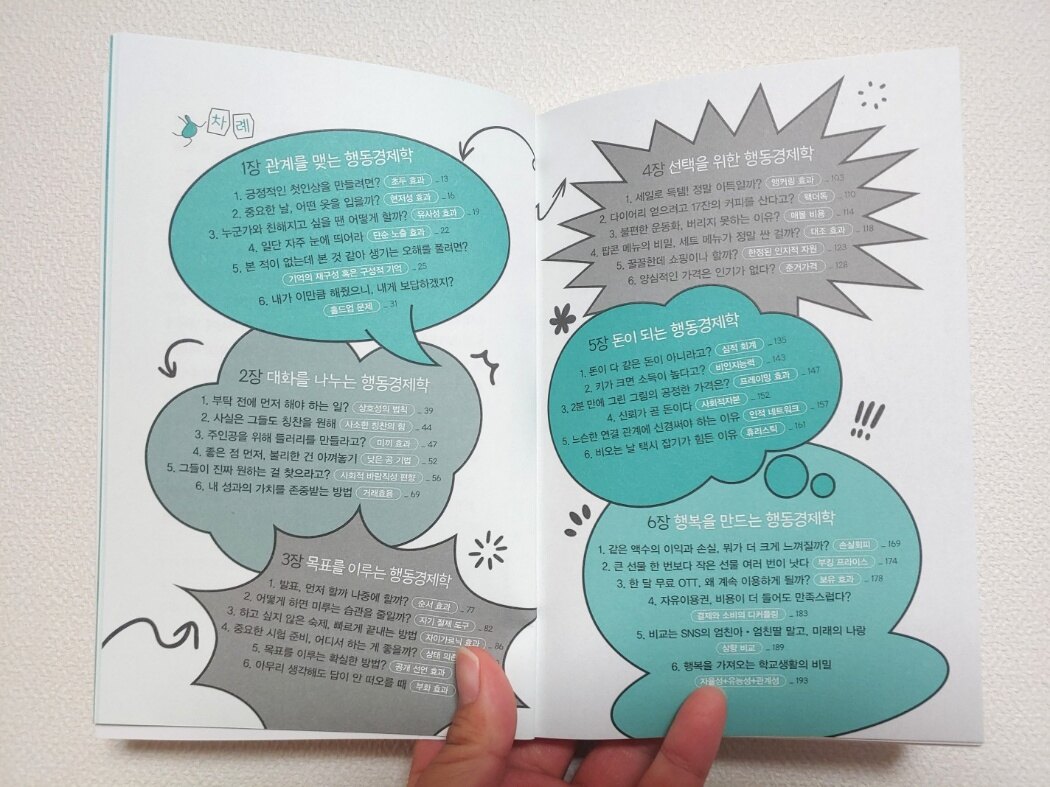 차례
1장 관계를 맺는 행동경제학
1. 긍정적인 첫인상을 만들려면? 초두 효과 _ 13
2. 중요한 날, 어떤 옷을 입을까? 현저성 효과 _ 16
3. 누군가와 친해지고 싶을 땐 어떻게 할까? 유사성 효과 _ 19
4. 일단 자주 눈에 띄어라 단순 노출 효과 _ 22
5. 본 적이 없는데 본 것 같아 생기는 오해를 풀려면?
기억의 재구성 혹은 구성적 기억 _ 25
6. 내가 이만큼 해줬으니, 내게 보답하겠지?
홀드업 문제 _ 31
2장 대화를 나누는 행동경제학
1. 부탁 전에 먼저 해야 하는 일? 상호성의 법칙 _ 39
2. 사실은 그들도 칭찬을 원해 사소한 칭찬의 힘 _ 44
3. 주인공을 위해 들러리를 만들라고? 미끼 효과 _ 47
4. 좋은 점 먼저, 불리한 건 아껴놓기 낮은 공 기법 _ 52
5. 그들이 진짜 원하는 걸 찾으라고? 사회적 바람직성 편향 _ 56
6. 내 성과의 가치를 존중받는 방법 거래효용 _ 69
3장 목표를 이루는 행동경제학
1. 발표, 먼저 할까 나중에 할까? 순서 효과 _ 77
2. 어떻게 하면 미루는 습관을 줄일까? 자기 절제 도구 _ 82
3. 하고 싶지 않은 숙제, 빠르게 끝내는 방법 자이가르닉 효과 _ 86
4. 중요한 시험 준비, 어디서 하는 게 좋을까? 상태 의존
5. 목표를 이루는 확실한 방법? 공개 선언 효과
6. 아무리 생각해도 답이 안 떠오를 때 부화 효과
4장 선택을 위한 행동경제학
1. 세일로 득템! 정말 이득일까? 앵커링 효과 _ 103
2. 다이어리 얻으려고 17잔의 커피를 산다고? 왝더독 _ 110
3. 불편한 운동화, 버리지 못하는 이유? 매몰 비용 _ 114
4. 팝콘 메뉴의 비밀, 세트 메뉴가 정말 싼 걸까? 대조 효과 _ 118
5. 꿀꿀한데 쇼핑이나 할까? 한정된 인지적 자원 _ 123
6. 양심적인 가격은 인기가 없다? 준거가격 _ 128
5장 돈이 되는 행동경제학
1. 돈이 다 같은 돈이 아니라고? 심적 회계 _ 135
2. 키가 크면 소득이 높다고? 비인지능력 _ 143
3. 2분 만에 그린 그림의 공정한 가격은? 프레이밍 효과 _ 147
4. 신뢰가 곧 돈이다 사회적자본 _ 152
5. 느슨한 연결 관계에 신경써야 하는 이유 인적 네트워크 _ 157
6. 비오는 날 택시 잡기가 힘든 이유 휴리스틱 _ 161
6장 행복을 만드는 행동경제학
1. 같은 액수의 이익과 손실, 뭐가 더 크게 느껴질까? 손실회피 _ 169
2. 큰 선물 한 번보다 작은 선물 여러 번이 낫다 부킹 프라이스 _ 174
3. 한 달 무료 OTT, 왜 계속 이용하게 될까? 보유 효과 _ 178
4. 자유이용권, 비용이 더 들어도 만족스럽다?
결제와 소비의 디커플링 _ 183
5. 비교는 SNS의 엄친아·엄친딸 말고, 미래의 나랑
상향 비교 _ 189
6. 행복을 가져오는 학교생활의 비밀
자율성+유능성+관계성 _ 193